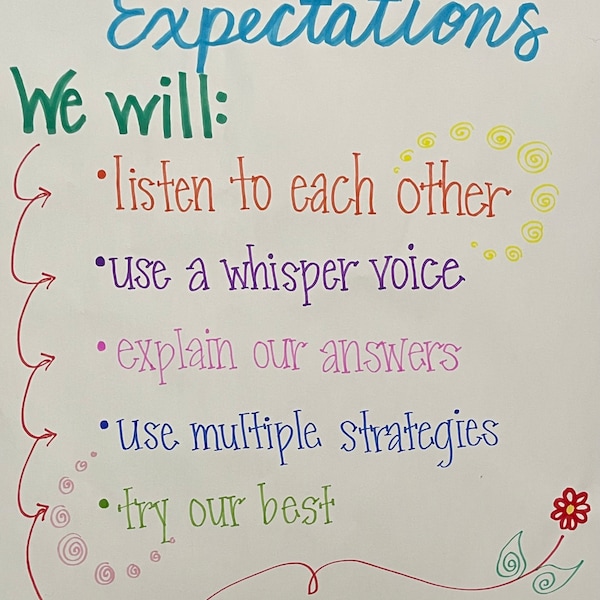 Expectations
We will:
• listen to each other
• use a whisper voice
• explain our answers
• use multiple strategies
• try our best